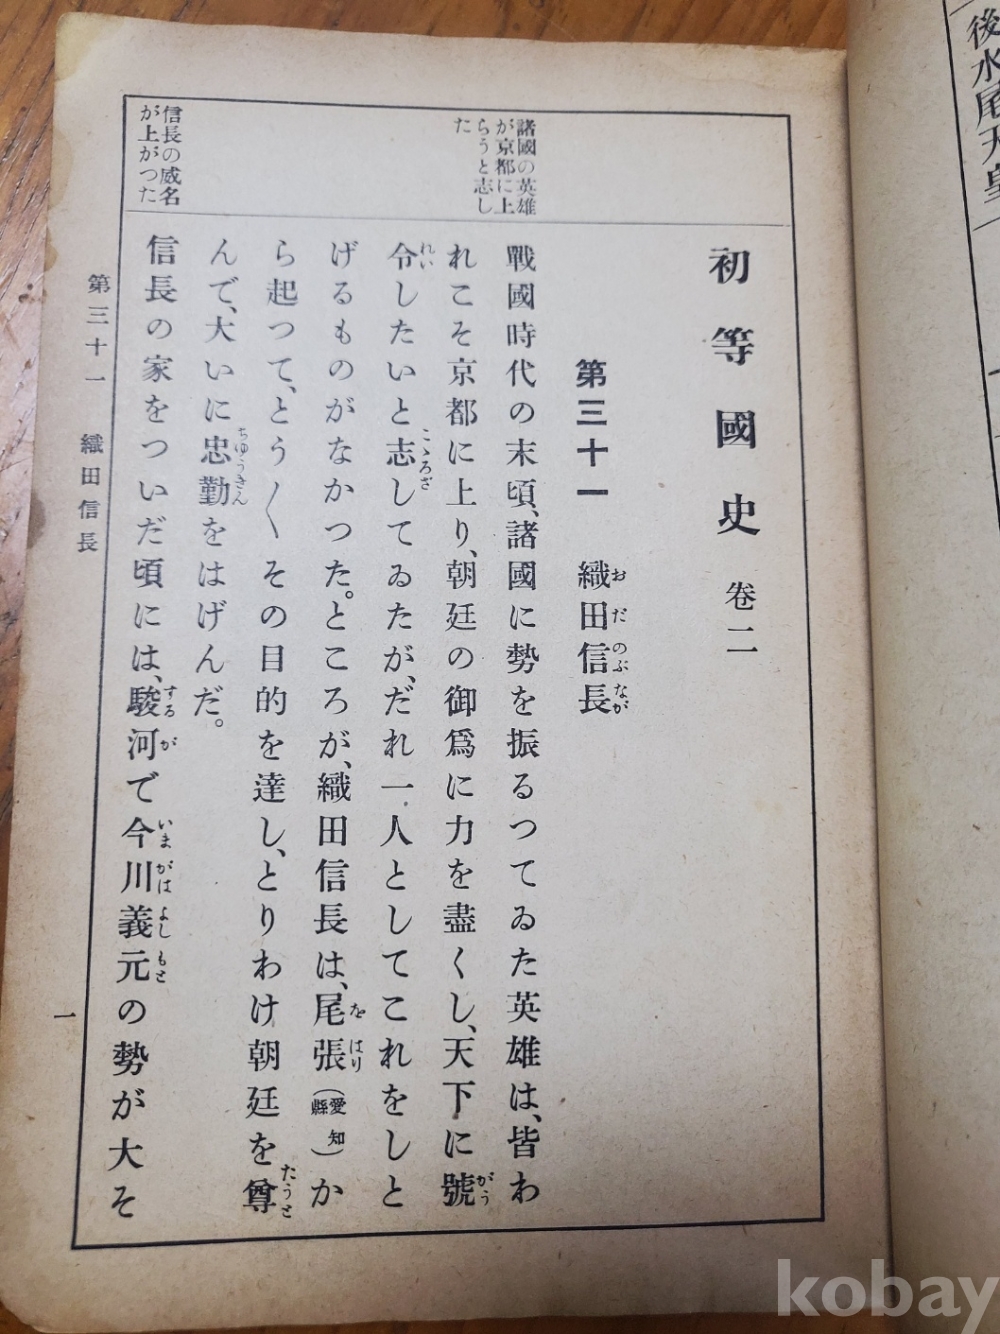 後水尾天皇
初等國史 卷二
第三十一 織田信長
おだのぶなが
諸國の英雄
が京都に上
らうと志し
た
戰國時代の末頃、諸國に勢を振るつてゐた英雄は、皆わ
れこそ京都に上り、朝廷の御爲に力を盡くし、天下に號
がう
令したいと志してゐたが、だれ一人としてこれをしと
れい
こゝろざ
げるものがなかつた。ところが、織田信長は、尾張(愛知縣)か
をはり
ら起つて、とう〳〵その目的を達し、とりわけ朝廷を尊
たうと
んで、大いに忠勤をはげんだ。
ちゆうきん
信長の威名
が上がつた
信長の家をついだ頃には、駿河で今川義元の勢が大そ
するが
いまがはよしもと
第三十一 織田信長
一
kobay